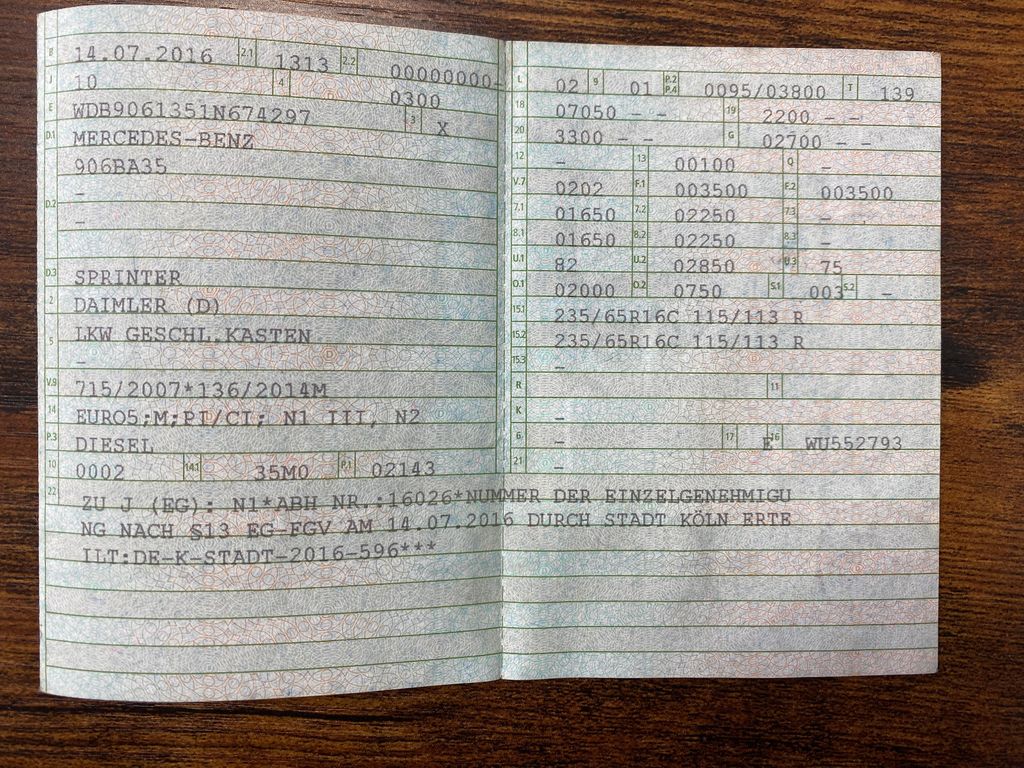 B 14.07.2016 2.1 1313 2.2 00000000-
J 10 4 0300
E WDB9061351N674297 3 X
D.1 MERCEDES-BENZ
906BA35
-
D.2 -
D.3 SPRINTER
2 DAIMLER (D)
5 LKW GESCHL.KASTEN
-
V.9 715/2007*136/2014M
14 EURO5;M;PI/CI; N1 III, N2
P.3 DIESEL
10 0002 14.1 35M0 P.1 02143
L 02 9 01 P.2 P.4 0095/03800 T 139
18 07050 - - 19 2200 - -
20 3300 - - G 02700 - -
12 - 13 00100 Q -
V.7 0202 F.1 003500 F.2 003500
7.1 01650 7.2 02250 7.3 -
8.1 01650 8.2 02250 8.3 -
U.1 82 U.2 02850 U.3 75
O.1 02000 O.2 0750 S.1 003 S.2 -
15.1 235/65R16C 115/113 R
15.2 235/65R16C 115/113 R
15.3 -
R 11
K -
6 - 17 E 16 WU552793
21 -
22 ZU J (EG): N1*ABH NR.:16026*NUMMER DER EINZELGENEHMIGU
NG NACH §13 EG-FGV AM 14.07.2016 DURCH STADT KÖLN ERTE
ILT:DE-K-STADT-2016-596***